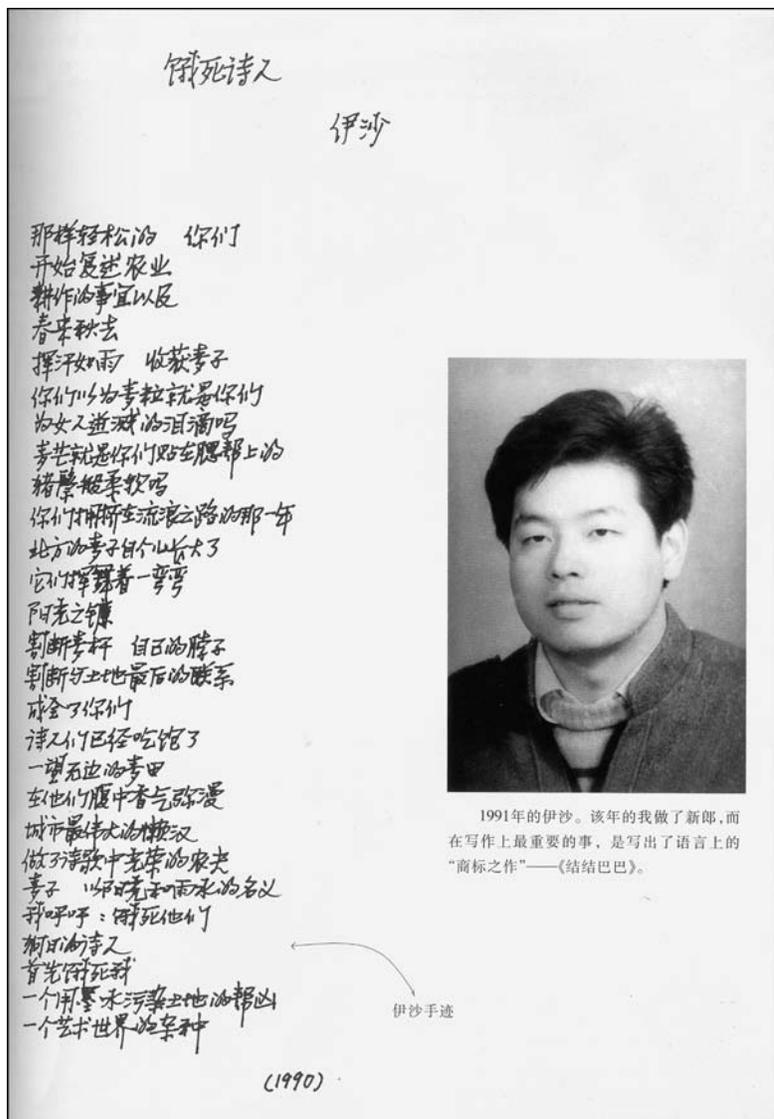 饿死诗人
伊沙
那样轻松的　你们
开始复述农业
耕作的事宜以及
春来秋去
挥汗如雨　收获麦子
你们以为麦粒就是你们
为女人迸溅的泪滴吗
麦芒就是你们贴在腮帮上的
猪鬃般柔软吗
你们拥挤在流浪之路的那一年
北方的麦子自个儿长大了
它们挥舞着一弯弯
阳光之镰
割断麦秆　自己的脖子
割断与土地最后的联系
成全了你们
诗人们已经吃饱了
一望无边的麦田
在他们腹中香气弥漫
城市最伟大的懒汉
做了诗歌中光荣的农夫
麦子　以阳光和雨水的名义
我呼吁：饿死他们
狗日的诗人
首先饿死我
一个用墨水污染土地的帮凶
一个艺术世界的杂种
(1990)
1991年的伊沙。该年的我做了新郎,而
在写作上最重要的事，是写出了语言上的
“商标之作”——《结结巴巴》。
伊沙手迹